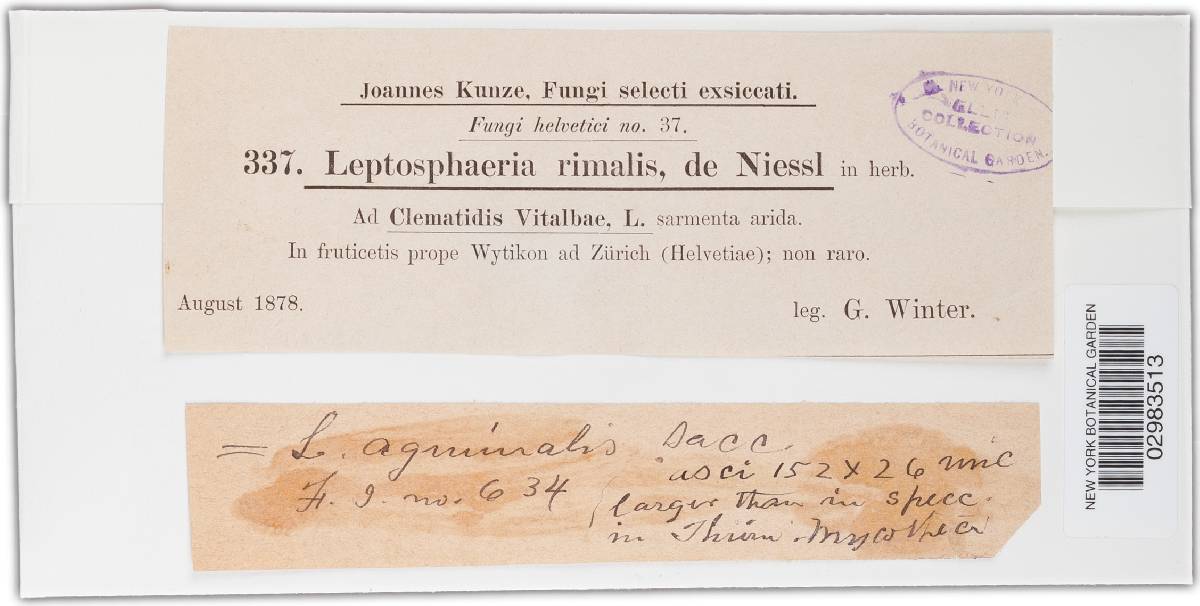 Joannes Kunze, Fungi selecti exsiccati.
Fungi helvetici no. 37.
337. Leptosphaeria rimalis, de Niessl in herb.
Ad Clematidis Vitalbae, L. sarmenta arida.
In fruticetis prope Wytikon ad Zürich (Helvetiae); non raro.
August 1878.
leg. G. Winter.
NEW YORK
ELLIS
COLLECTION
BOTANICAL GARDEN.
= L. agminalis Sacc.
F. I. no. 634
asci 152 X 26 mic
larger than in spec.
in Thüm. Myco
NEW YORK BOTANICAL GARDEN
02983513